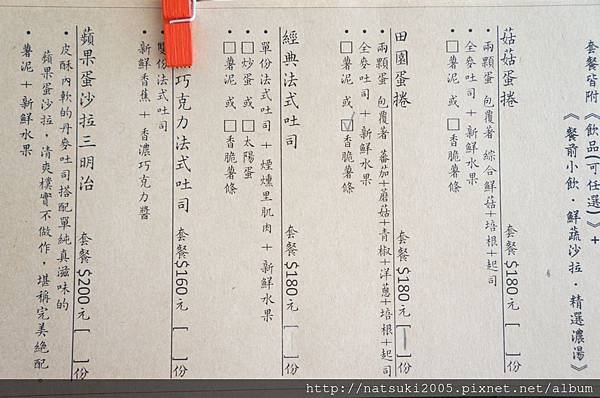 套餐皆附《飲品(可任選)》+
《餐前小飲·鮮蔬沙拉·精選濃湯》
菇菇蛋捲 套餐$180元 [ ]份
• 兩顆蛋 包覆著 綜合鮮菇+培根+起司
• 全麥吐司+新鮮水果
• □薯泥 或 □香脆薯條
田園蛋捲 套餐$180元 [ ]份
• 兩顆蛋 包覆著 蕃茄+蘑菇+青椒+洋蔥+培根+起司
• 全麥吐司+新鮮水果
• □薯泥 或 ☑香脆薯條
經典法式吐司 套餐$180元 [ ]份
• 單份法式吐司 + 煙燻里肌肉 + 新鮮水果
• □炒蛋 或 □太陽蛋
• □薯泥 或 □香脆薯條
巧克力法式吐司 套餐$160元 [ ]份
• 雙份法式吐司
• 新鮮香蕉 + 香濃巧克力醬
蘋果蛋沙拉三明治 套餐$200元 [ ]份
• 皮酥內軟的丹麥吐司搭配單純真滋味的
蘋果蛋沙拉,清爽樸實不做作,堪稱完美絕配。
• 薯泥+新鮮水果
http://natsuki2005.pixnet.net/album